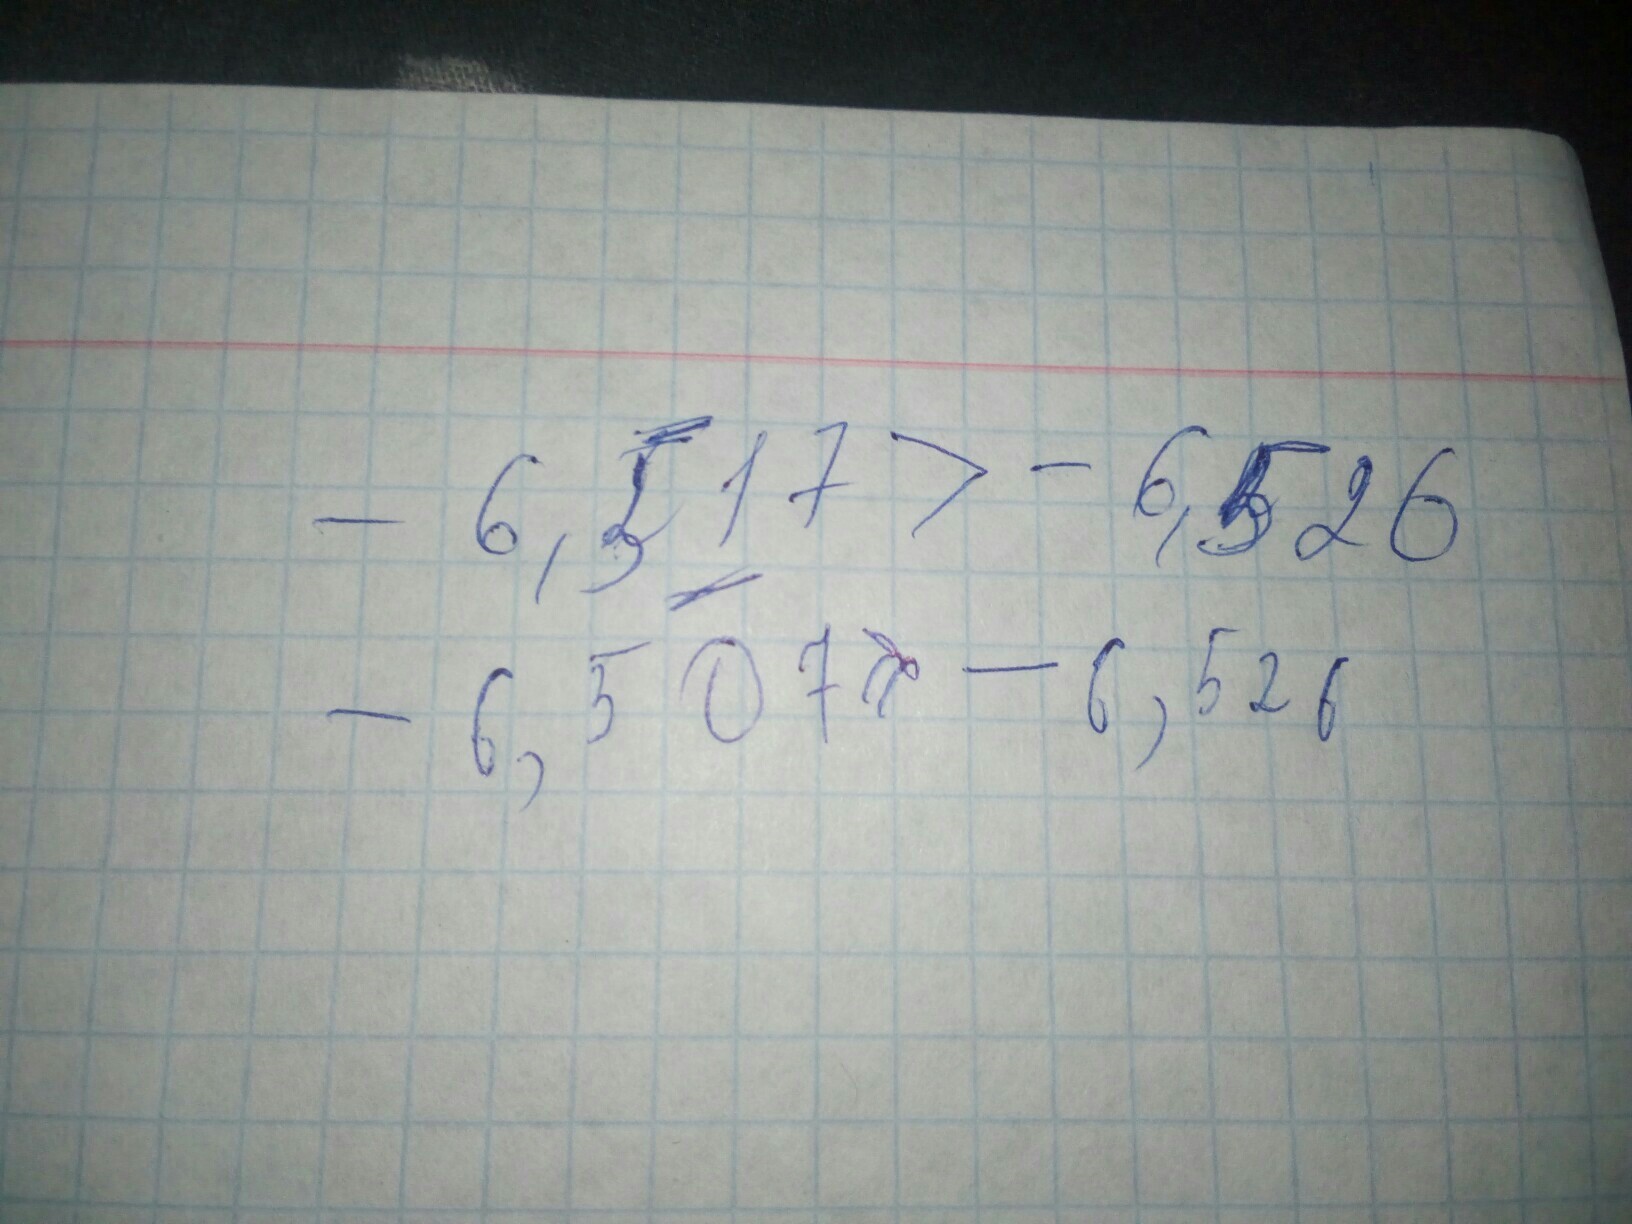 - 6,517 > - 6,526
- 6,507 - 6,526